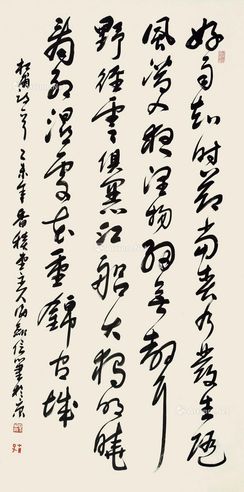 好雨知时節當春乃發生随
風潛入夜潤物細無聲
野徑雲俱黑江船火獨明曉
看紅濕處花重錦官城
杜甫詩 乙未年 主人 信筆於京